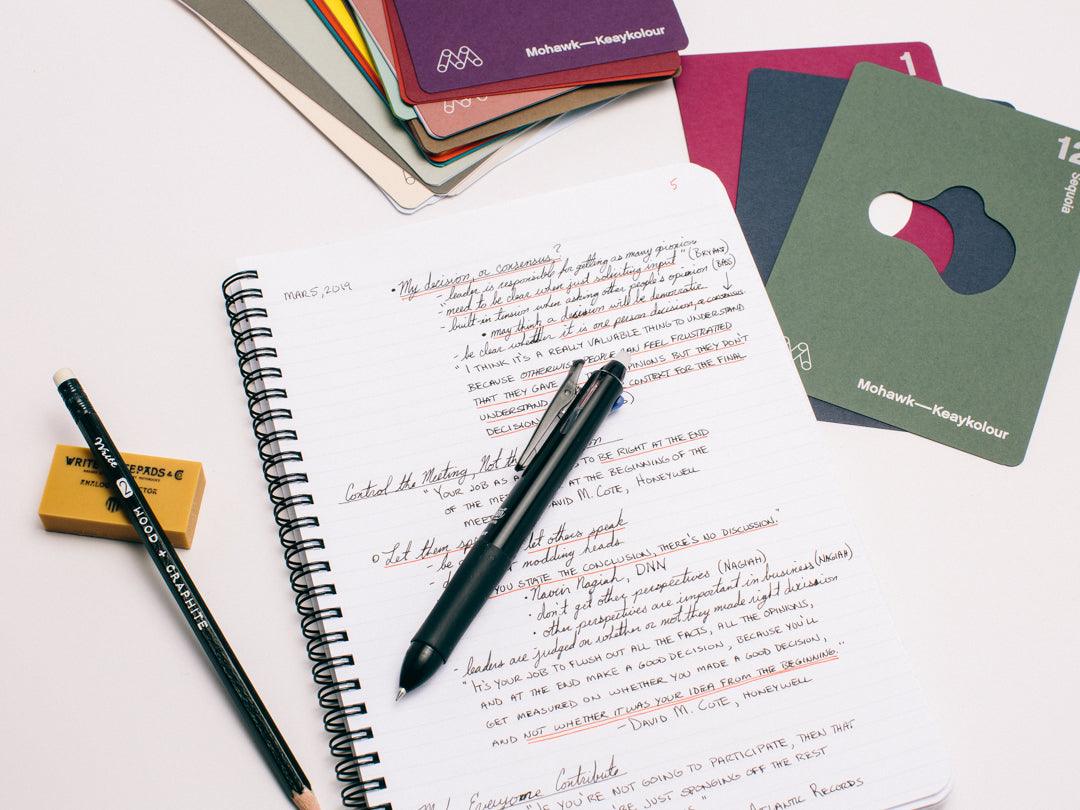 Mohawk—Keaykolour
1
12
Sequoia
Mohawk—Keaykolour
5
MAR 5, 2019
• My decision, or consensus?
- leader is responsible for getting as many opinions
- "need to be clear when just soliciting input" (BRYANT)
- built-in tension when asking other people's opinion (BASS)
• may think a decision will be democratic
- be clear whether it is one person decision, or consensus
"I THINK IT'S A REALLY VALUABLE THING TO UNDERSTAND
BECAUSE OTHERWISE PEOPLE CAN FEEL FRUSTRATED
THAT THEY GAVE OPINIONS BUT THEY DON'T
UNDERSTAND CONTEXT FOR THE FINAL
DECISION
Control the Meeting, Not the
"YOUR JOB AS A TO BE RIGHT AT THE END
OF THE MEE AT THE BEGINNING OF THE
MEET DAVID M. COTE, HONEYWELL
Let them spe let others speak
- be nodding heads
- YOU STATE THE CONCLUSION, THERE'S NO DISCUSSION."
Navin Nagiah, DNN
• don't get other perspectives (NAGIAH)
• other perspectives are important in business (NAGIAH)
- leaders are judged on whether or not they made right decision
"IT'S YOUR JOB TO FLUSH OUT ALL THE FACTS, ALL THE OPINIONS,
AND AT THE END MAKE A GOOD DECISION, BECAUSE YOU'LL
GET MEASURED ON WHETHER YOU MADE A GOOD DECISION,
AND NOT WHETHER IT WAS YOUR IDEA FROM THE BEGINNING."
—DAVID M. COTE, HONEYWELL
Everyone Contribute
"IF YOU'RE NOT GOING TO PARTICIPATE, THEN THAT
YOU'RE JUST SPONGING OFF THE REST
ATLANTIC RECORDS
WRITE NOTEPADS & CO
Write 2 WOOD + GRAPHITE